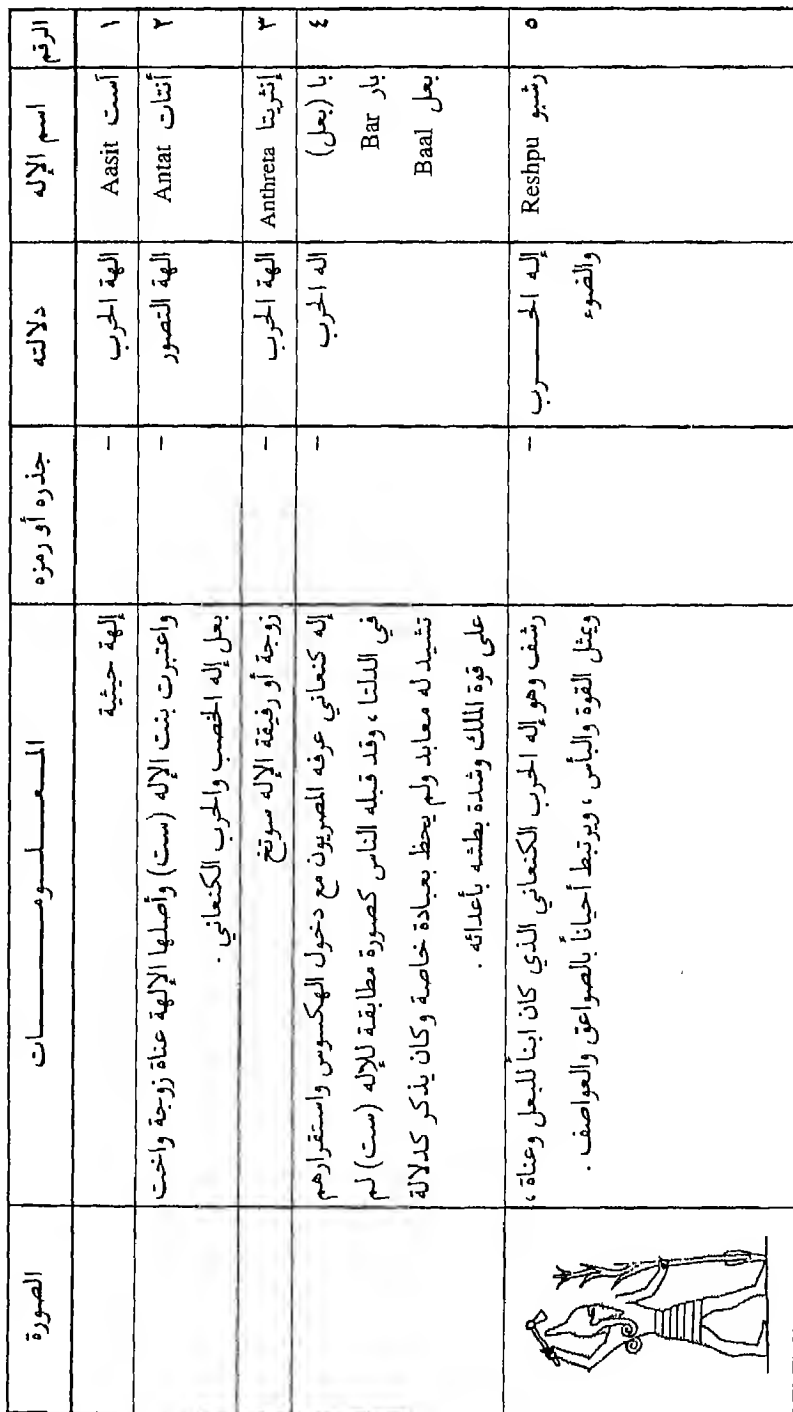 الرقم
اسم الإله
دلالته
جذره أو رمزه
المعلومات
الصورة
١
آست Aasit
الهة الحرب
-
إلهة حيثية
٢
أنتات Antat
الهة التصور
-
واعتبرت بنت الإله (ست) وأصلها الإلهة عناة زوجة واخت
بعل إله الخصب والحرب الكنعاني .
٣
إنثريتا Anthreta
الهة الحرب
-
زوجة أو رفيقة الإله سوتخ
٤
با (بعل)
بار Bar
بعل Baal
اله الحرب
-
إله كنعاني عرفه المصريون مع دخول الهكسوس واستقرارهم
في الدلتا ، وقد قبله الناس كصورة مطابقة للإله (ست) لم
تشيد له معابد ولم يحظ بعبادة خاصة وكان يذكر كدلالة
على قوة الملك وشدة بطشه بأعدائه .
٥
رشبو Reshpu
إله الحرب
والضوء
-
رشف وهو إله الحرب الكنعاني الذي كان ابناً للبعل وعناة ،
ويمثل القوة والبأس ، ويرتبط أحياناً بالصواعق والعواصف .